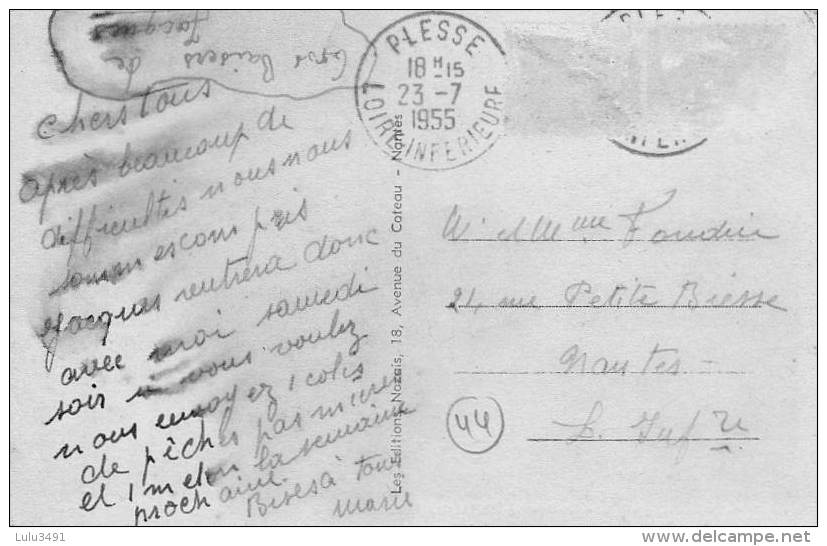 Gros Baisers de
Jacques
chers tous
après beaucoup de
difficultés nous nous
sommes compris
Jacques rentrera donc
avec moi samedi
soir si vous voulez
nous envoyez 1 colis
de pêches pas mûres
et 1 melon la semaine
prochaine.
Bises à tous
Marie
PLESSE
18 H 15
23 - 7
1955
LOIRE INFERIEURE
Les Editions Nozais, 18, Avenue du Coteau - Nantes
Mr et Mme
24 rue Petite Biesse
Nantes -
L. Infre
44
Lulu3491
www.delcampe.net